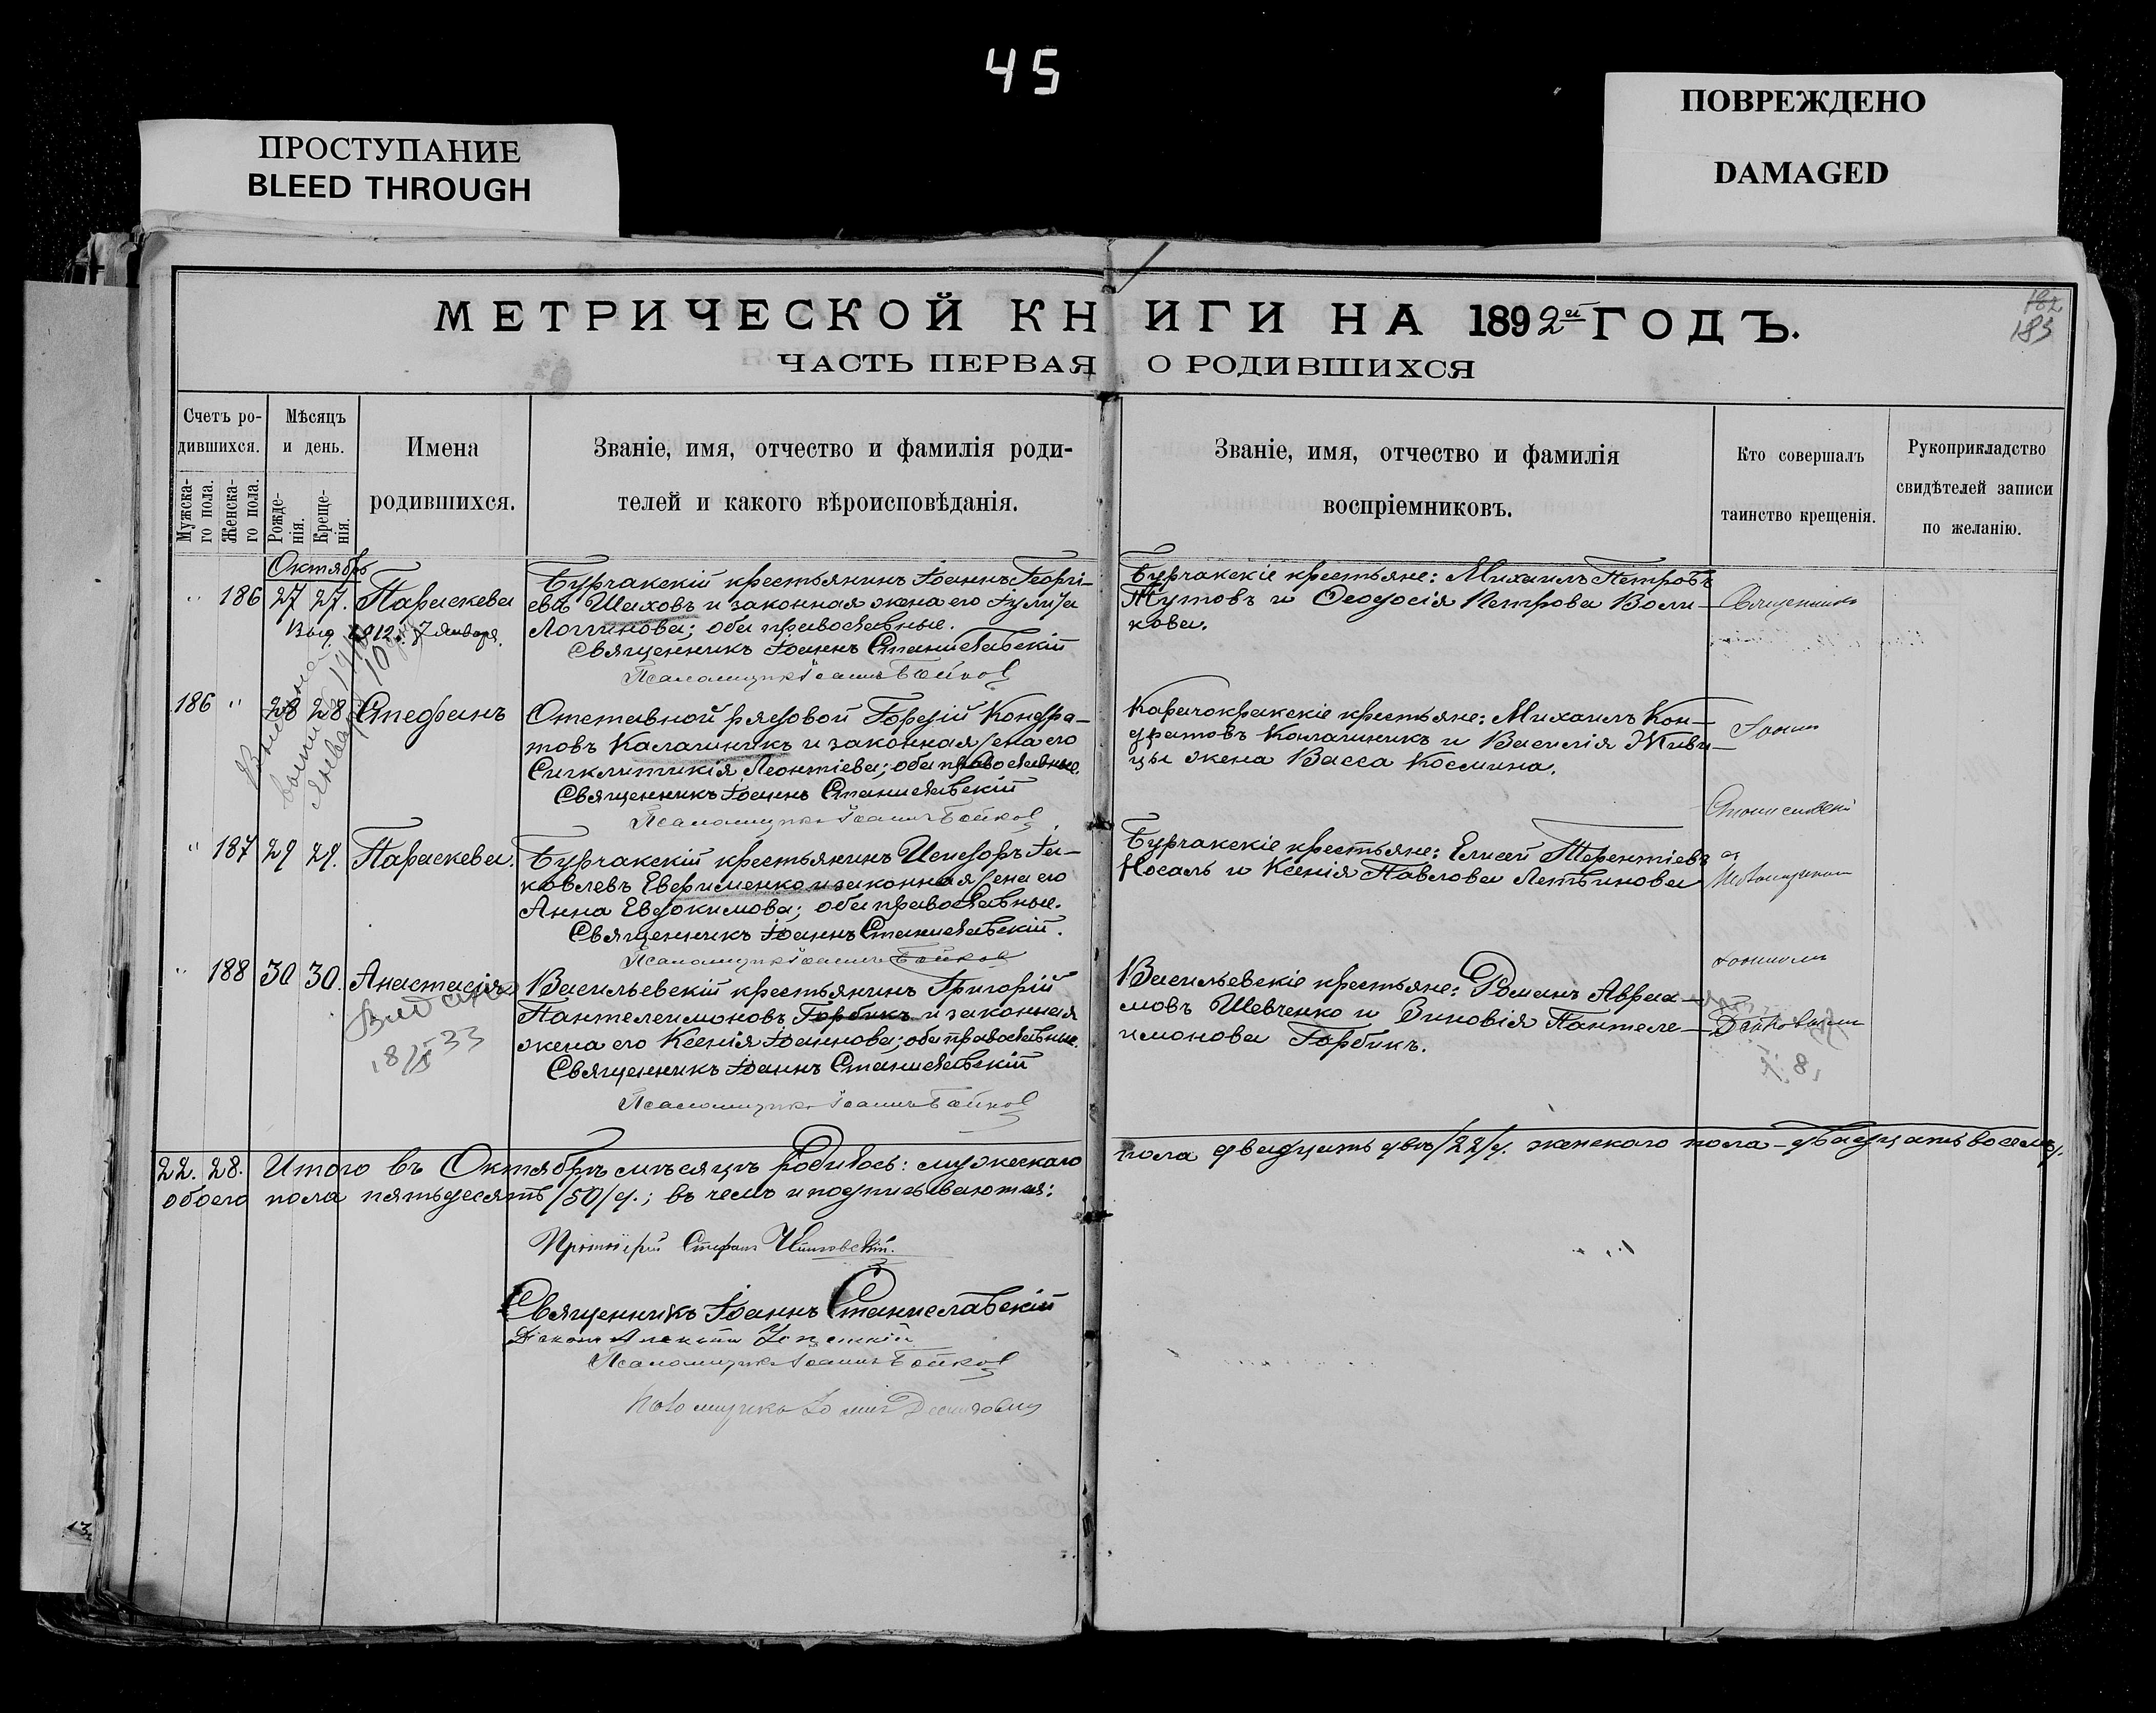 45
ПРОСТУПАНИЕ
BLEED THROUGH
ПОВРЕЖДЕНО
DAMAGED
МЕТРИЧЕСКОЙ КНИГИ НА 1892й ГОДЪ.
182
183
ЧАСТЬ ПЕРВАЯ О РОДИВШИХСЯ
Счетъ ро-
дившихся.
Мужска-
го пола.
Женска-
го пола.
Мѣсяцъ
и день.
Рожде-
нія.
Креще-
нія.
Имена
родившихся.
Званіе, имя, отчество и фамилія роди-
телей и какого вѣроисповѣданія.
Званіе, имя, отчество и фамилія
воспріемниковъ.
Кто совершалъ
таинство крещенія.
Рукоприкладство
свидѣтелей записи
по желанію.
Октябрь
" 186 27 27. Параскева
Выд. 1912 г. 7 Января.
Бурчакскій крестьянинъ Іоаннъ Георгі-
евъ Шаховъ и законная жена его Іулита
Логгинова; оба православные.
Священникъ Іоаннъ Станиславскій
Псаломщикъ Іоаннъ Бойков
Бурчакскіе крестьяне: Михаилъ Петровъ
Тутовъ и Ѳеодосія Петрова Воли-
кова.
Священникъ
186 " 28 28 Стефанъ
Отставной рядовой Гордій Кондра-
товъ Калашникъ и законная жена его
Сигклитикія Леонтіева; оба православные.
Священникъ Іоаннъ Станиславскій
Псаломщикъ Іоаннъ Бойков
Карачокракскіе крестьяне: Михаилъ Кон-
дратовъ Калашникъ и Василія Живи-
цы жена Васса Космина.
Іоаннъ
Станиславскій
" 187 29 29. Параскева.
Бурчакскій крестьянинъ Исидоръ Іа-
ковлевъ Ефименко и законная жена его
Анна Евдокимова; оба православные.
Священникъ Іоаннъ Станиславскій.
Псаломщикъ Іоаннъ Бойков
Бурчакскіе крестьяне: Елисей Терентіевъ
Носаль и Ксенія Павлова Летвинова
съ
Псаломщикомъ
Іоанномъ
" 188 30 30. Анастасія
Выдана
Васильевскій крестьянинъ Григорій
Пантелеимоновъ Горбикъ и законная
жена его Ксенія Іоаннова; оба православные.
Священникъ Іоаннъ Станиславскій
Псаломщикъ Іоаннъ Бойков
Васильевскіе крестьяне: Романъ Авраа-
мовъ Шевченко и Зиновія Пантеле-
имонова Горбикъ.
Бойковымъ
22. 28. Итого въ Октябрѣ мѣсяцѣ родилось: мужескаго пола двадцать два /22/ д. женскаго пола - двадцать восемь,
обоего пола пятьдесятъ /50/ д.; въ чемъ и подписываются:
Протоіерей Стефанъ
Священникъ Іоаннъ Станиславскій
Діаконъ Алексій
Псаломщикъ Іоаннъ Бойков
Псаломщикъ